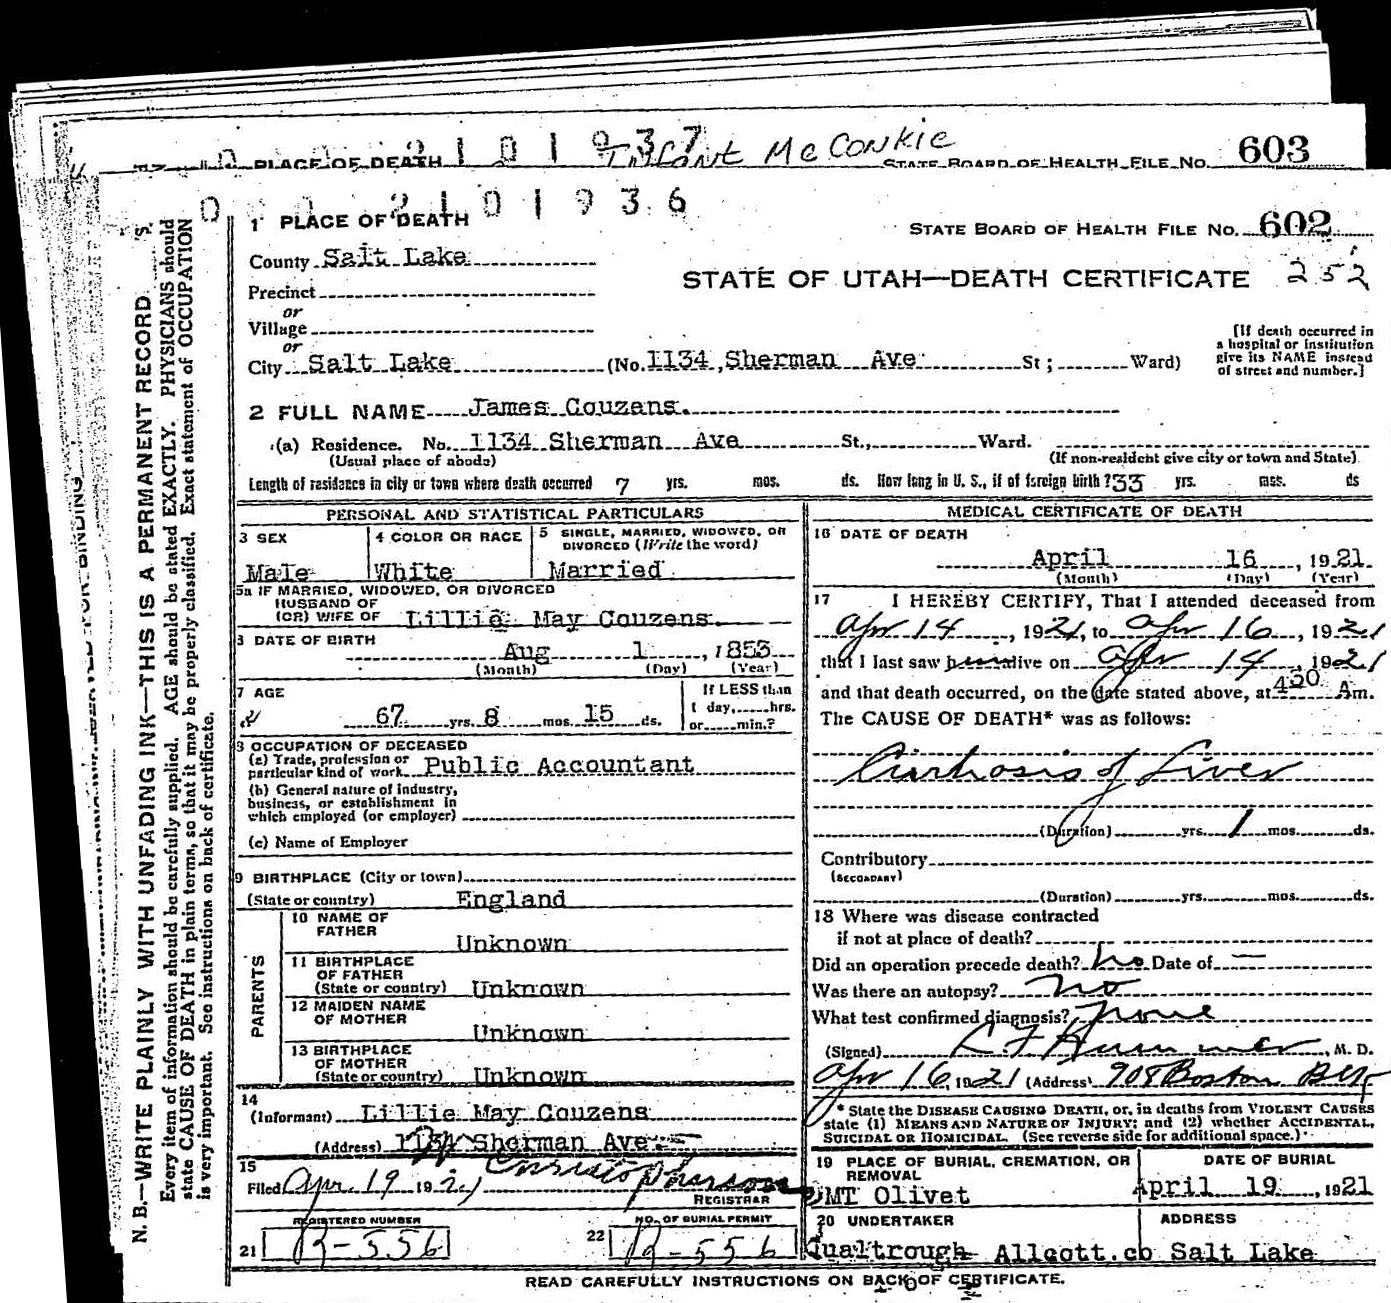 2101937 Infant McConkie
PLACE OF DEATH STATE BOARD OF HEALTH FILE No. 603
2101936
1 PLACE OF DEATH STATE BOARD OF HEALTH FILE No. 602
County Salt Lake STATE OF UTAH—DEATH CERTIFICATE 252
Precinct
or
Village
or
City Salt Lake (No. 1134, Sherman Ave St; Ward)
[If death occurred in
a hospital or institution
give its NAME instead
of street and number.]
2 FULL NAME James Couzens.
(a) Residence. No. 1134 Sherman Ave St., Ward.
(Usual place of abode) (If non-resident give city or town and State)
Length of residence in city or town where death occurred 7 yrs. mos. ds. How long in U. S., if of foreign birth? 33 yrs. mos. ds
PERSONAL AND STATISTICAL PARTICULARS
3 SEX 4 COLOR OR RACE 5 SINGLE, MARRIED, WIDOWED, OR
DIVORCED (Write the word)
Male White Married
5a IF MARRIED, WIDOWED, OR DIVORCED
HUSBAND OF
(OR) WIFE OF Lillie May Couzens.
6 DATE OF BIRTH
Aug 1, 1853
(Month) (Day) (Year)
7 AGE If LESS than
67 yrs. 8 mos. 15 ds. 1 day, hrs.
or min.?
8 OCCUPATION OF DECEASED
(a) Trade, profession or
particular kind of work Public Accountant
(b) General nature of industry,
business, or establishment in
which employed (or employer)
(c) Name of Employer
9 BIRTHPLACE (City or town)
(State or country) England
PARENTS
10 NAME OF
FATHER Unknown
11 BIRTHPLACE
OF FATHER
(State or country) Unknown
12 MAIDEN NAME
OF MOTHER Unknown
13 BIRTHPLACE
OF MOTHER
(State or country) Unknown
14
(Informant) Lillie May Couzens
(Address) 1134 Sherman Ave
15
Filed Apr 19 1921
REGISTRAR
REGISTERED NUMBER NO. OF BURIAL PERMIT
21 B-556 22 B-556
MEDICAL CERTIFICATE OF DEATH
16 DATE OF DEATH
April 16, 1921
(Month) (Day) (Year)
17 I HEREBY CERTIFY, That I attended deceased from
Apr 14, 1921, to Apr 16, 1921
that I last saw him alive on Apr 14, 1921
and that death occurred, on the date stated above, at 430 Am.
The CAUSE OF DEATH* was as follows:
Cirrhosis of Liver
(Duration) yrs. 1 mos. ds.
Contributory
(SECONDARY)
(Duration) yrs. mos. ds.
18 Where was disease contracted
if not at place of death?
Did an operation precede death? No Date of —
Was there an autopsy? No
What test confirmed diagnosis? None
(Signed) , M. D.
Apr 16, 1921 (Address) 908 Boston Bldg
* State the DISEASE CAUSING DEATH, or, in deaths from VIOLENT CAUSES
state (1) MEANS AND NATURE OF INJURY; and (2) whether ACCIDENTAL,
SUICIDAL OR HOMICIDAL. (See reverse side for additional space.)
19 PLACE OF BURIAL, CREMATION, OR
REMOVAL DATE OF BURIAL
MT Olivet April 19, 1921
20 UNDERTAKER ADDRESS
Qualtrough Allcott.co Salt Lake
READ CAREFULLY INSTRUCTIONS ON BACK OF CERTIFICATE.
N. B.—WRITE PLAINLY WITH UNFADING INK—THIS IS A PERMANENT RECORD
Every item of information should be carefully supplied. AGE should be stated EXACTLY. PHYSICIANS should
state CAUSE OF DEATH in plain terms, so that it may be properly classified. Exact statement of OCCUPATION
is very important. See instructions on back of certificate.